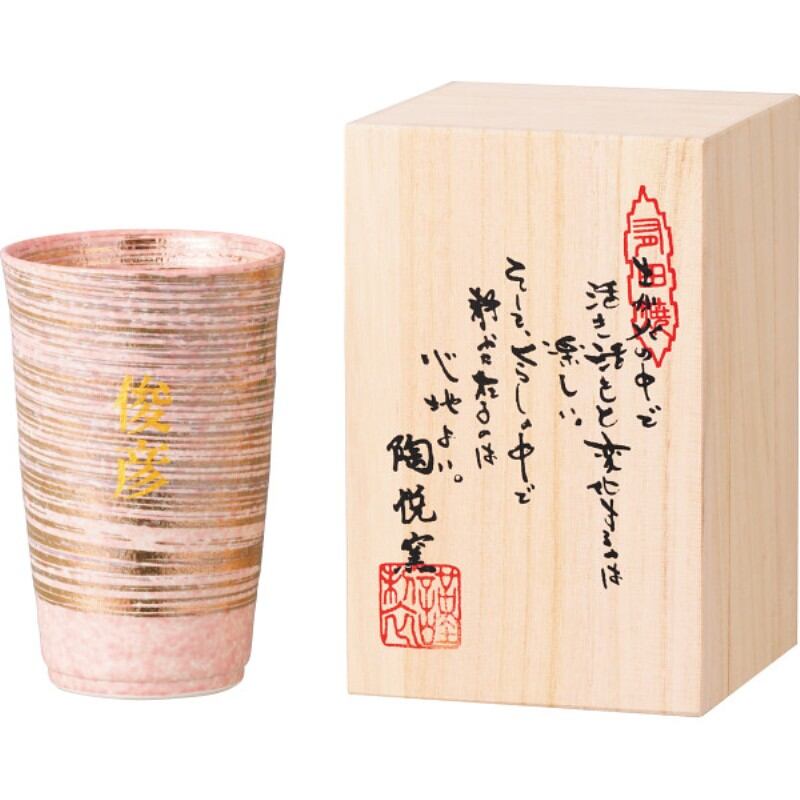 俊彦
有田焼
生が火の中で
活き活きと変化するのは
楽しい。
そして、くらしの中で
静かに在るのは
心地よい。
陶悦窯
謹製